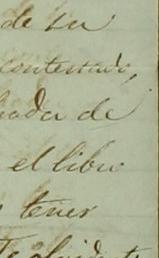 de su
contestado,
ada de
el libro
tener